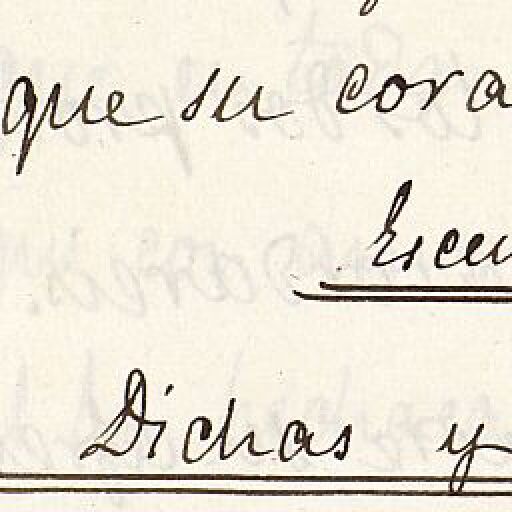 que su cora
Escen
Dichas y